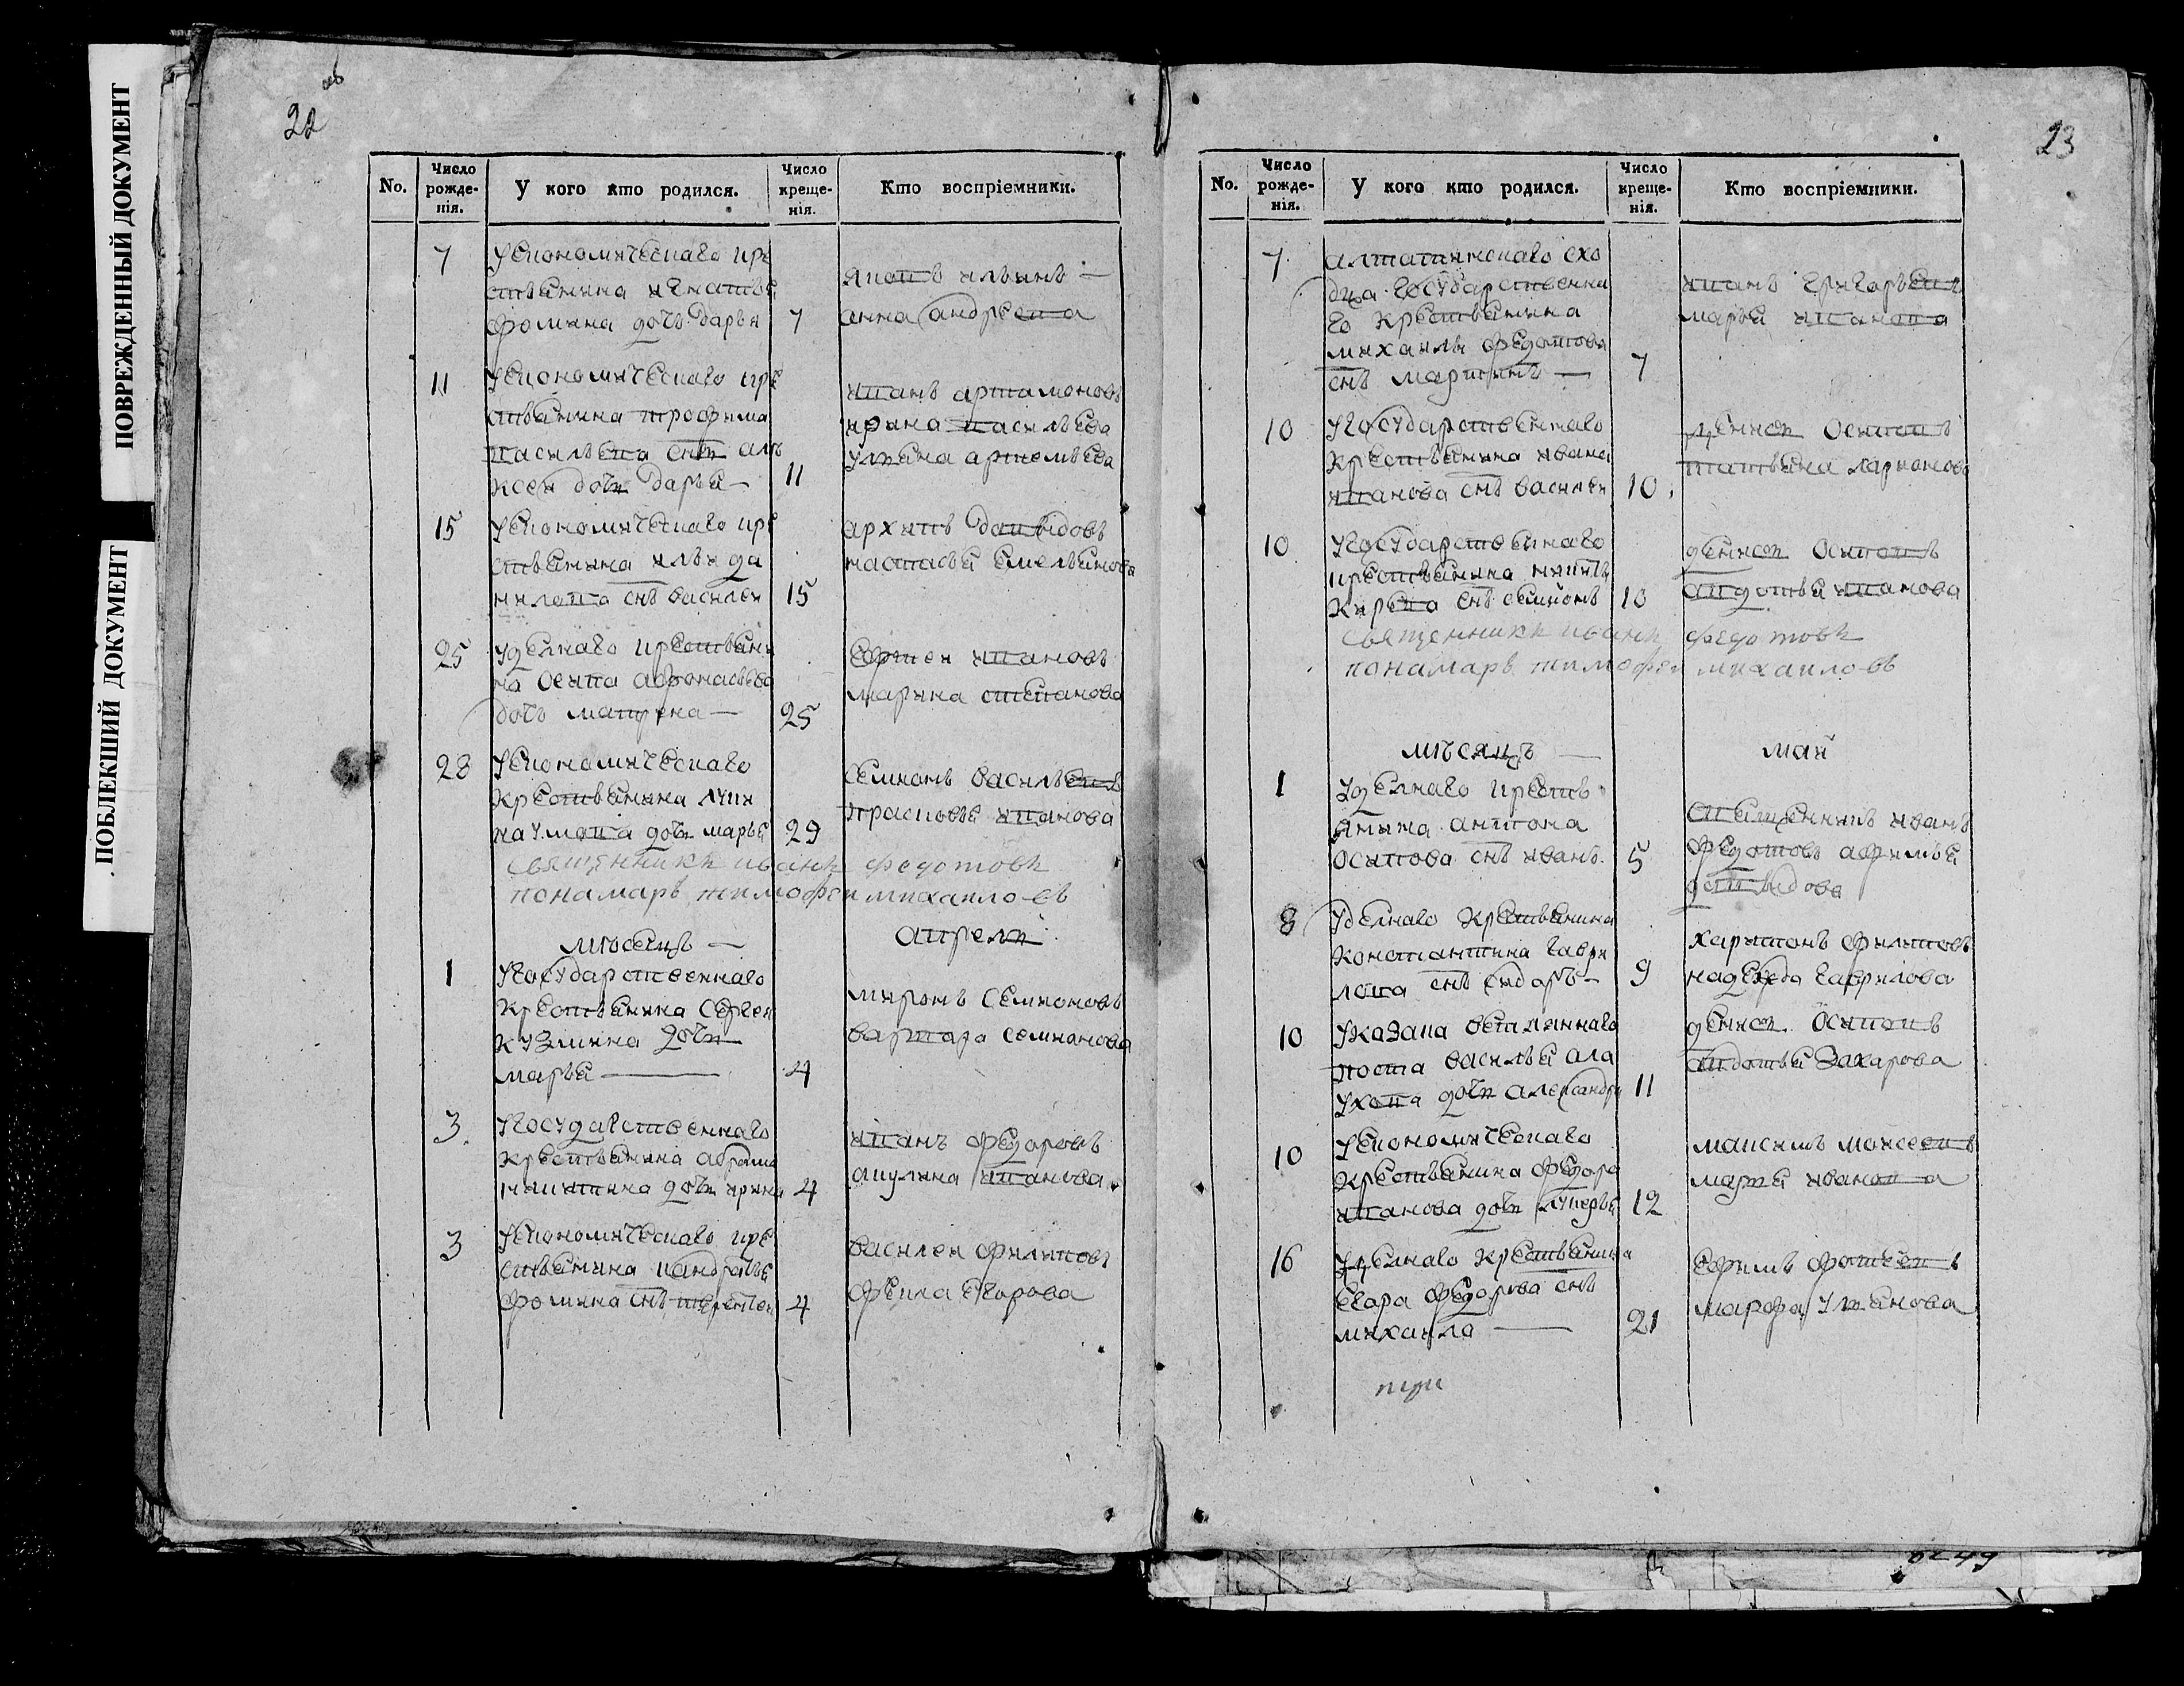 ПОВРЕЖДЕННЫЙ ДОКУМЕНТ
ПОБЛЕКШИЙ ДОКУМЕНТ
22 об
No.
Число рожде-нія.
У кого кто родился.
Число креще-нія.
Кто воспріемники.
7
Уекономическаго кре
стьянина игнатья
фомина дочь дарья 7
яковъ ильинъ —
анна андреева
11
Уекономическаго кре
стьянина трофима
васильева снъ але
ксеи дочь дарья — 11
иванъ артамоновъ
ирина васильева
ульяна артемьева
15
Уекономическаго кре
стьянина ильи да
нилова снъ василеи 15
архипъ давыдовъ
настасья емельянова
25
Уделнаго крестьяни
на осипа афонасьева
дочь матрена — 25
сергеи ивановъ
марина степанова
28
Уекономическаго
крестьянина луки
наумова дочь марья 29
семионъ васильевъ
прасковья иванова
священникъ иванъ федотовъ
пономарь тимофеи михаиловъ
месяцъ — апрель
1
Угосударственнаго
крестьянина сергея
кузмина дочь
марья — 4
миронъ семионовъ
варвара семионова
3
Угосударственнаго
крестьянина абрама
никитина дочь ирина 4
иванъ федоровъ
акулина иванова
3
Уекономическаго кре
стьянина кандратья
фомина снъ терентеи 4
василеи филиповъ
фекла егорова
23
No.
Число рожде-нія.
У кого кто родился.
Число креще-нія.
Кто воспріемники.
7
алтатинскаго схо
дца государственна
го крестьянина
михаилы федотова
снъ мартинъ — 7
иванъ григорьевъ
марья иванова
10
Угосударственнаго
крестьянина ивана
иванова снъ василеи 10
денисеи осиповъ
татьяна ларионова
10
Угосударственнаго
крестьянина никиты
карева снъ семионъ 10
денисеи осиповъ
авдотья иванова
священникъ иванъ федотовъ
понамарь тимофеи михаиловъ
месяцъ — май
1
Уделнаго кресть
янина антона
осипова снъ иванъ 5
священникъ иванъ
федотовъ афимья
давыдова
8
Уделнаго крестьянина
константина гаври
лова снъ сидоръ — 9
харитонъ филиповъ
надежда гаврилова
10
Указана
васильа ала
ухова дочь александра 11
денисеи осиповъ
авдотья захарова
10
Уекономическаго
крестьянина федора
иванова дочь лукерья 12
максимъ моисеевъ
марья иванова
16
Уделнаго крестьянина
егара федорова снъ
михаила — 21
ефимъ фатеевъ
марфа ульянова
при